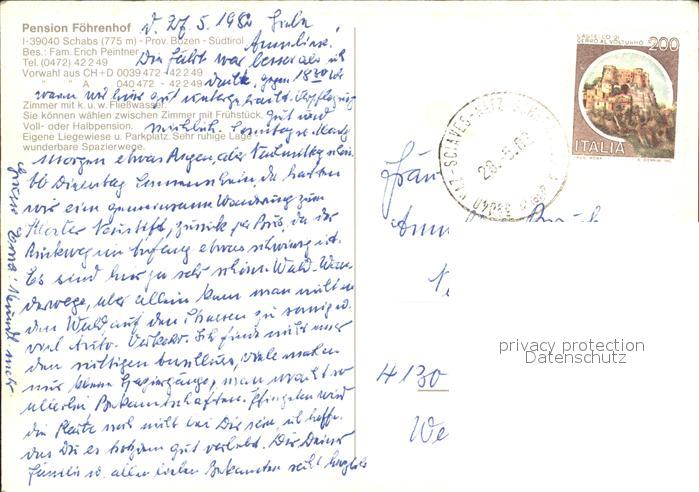 Pension Föhrenhof
I-39040 Schabs (775 m) - Prov. Bozen - Südtirol
Bes.: Fam. Erich Peintner
Tel. (0472) 42249
Vorwahl aus CH + D 0039472 - 42249
" " A 040472 - 42249
Zimmer mit k. u. w. Fließwasser.
Sie können wählen zwischen Zimmer mit Frühstück,
Voll- oder Halbpension.
Eigene Liegewiese u. Parkplatz. Sehr ruhige Lage,
wunderbare Spazierwege.
d. 27.5.1982 Liebe
Anneliese.
Die Fahrt war besser als ich
dachte, gegen 18 30 Uhr
waren wir hier gut untergebracht. Verpflegung
gut und
reichlich. Sonntag u.
Morgen etwas Regen, aber Nachmittag schön.
Ab Dienstag Sonnenschein, da hatten
wir eine gemeinsame Wanderung zum
Kloster Neustift, zurück per Bus, da der
Rückweg im Anfang etwas schwierig ist.
Es sind hier ja sehr schöne Wald-Wan-
derwege, aber allein kann man nicht in
den Wald auf den Strassen zu sonnig u.
viel Auto-Verkehr. Ich finde nicht immer
den richtigen Anschluss, viele machen
nur kleine Spaziergänge, man macht so
allerlei Bekanntschaften. Pfingsten wird
die Platte noch nicht bei Dir sein, ich hoffe
das Du es trotzdem gut verlebst. Dir Deiner
Familie u. allen lieben Bekannten recht herzliche
Grüsse
200
ITALIA
NAZ-SCIAVES
39040
28.-5.82
Frau
4130
We
privacy protection
Datenschutz